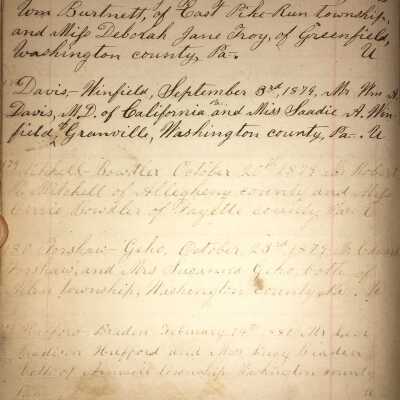 Wm Burtnett, of East Pike Run township,
and Miss Deborah Jane Troy, of Greenfield,
Washington county, Pa-. U
Davis,- Winfield, September 3rd 1879, Mr. Wm
Davis, M.D. of California Pa. and Miss Saadie A. Win-
field of Granville, Washington county, Pa-. U
Mitchell- October 1879 Robert
Mitchell of Allegheny county and Miss
of Fayette county, Pa. U
Forshaw- Geho, October 23rd 1879
Forshaw, and Mrs Susanna Geho, both of
Allen township, Washington county, Pa. U
Hufford- Braden February 24th
Madison Hufford and Miss
both of township Washington county